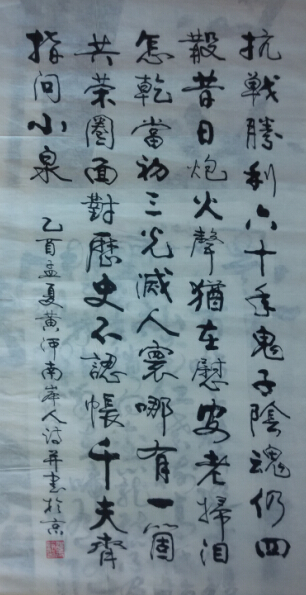 抗戰勝利六十年鬼子陰魂仍四
散昔日炮火聲猶在慰安老婦泪
怎乾當初三光滅人寰哪有一箇
共荣圈面對歷史不認帳千夫齊
指问小泉
乙酉孟夏黄河南岸人诗并书於京